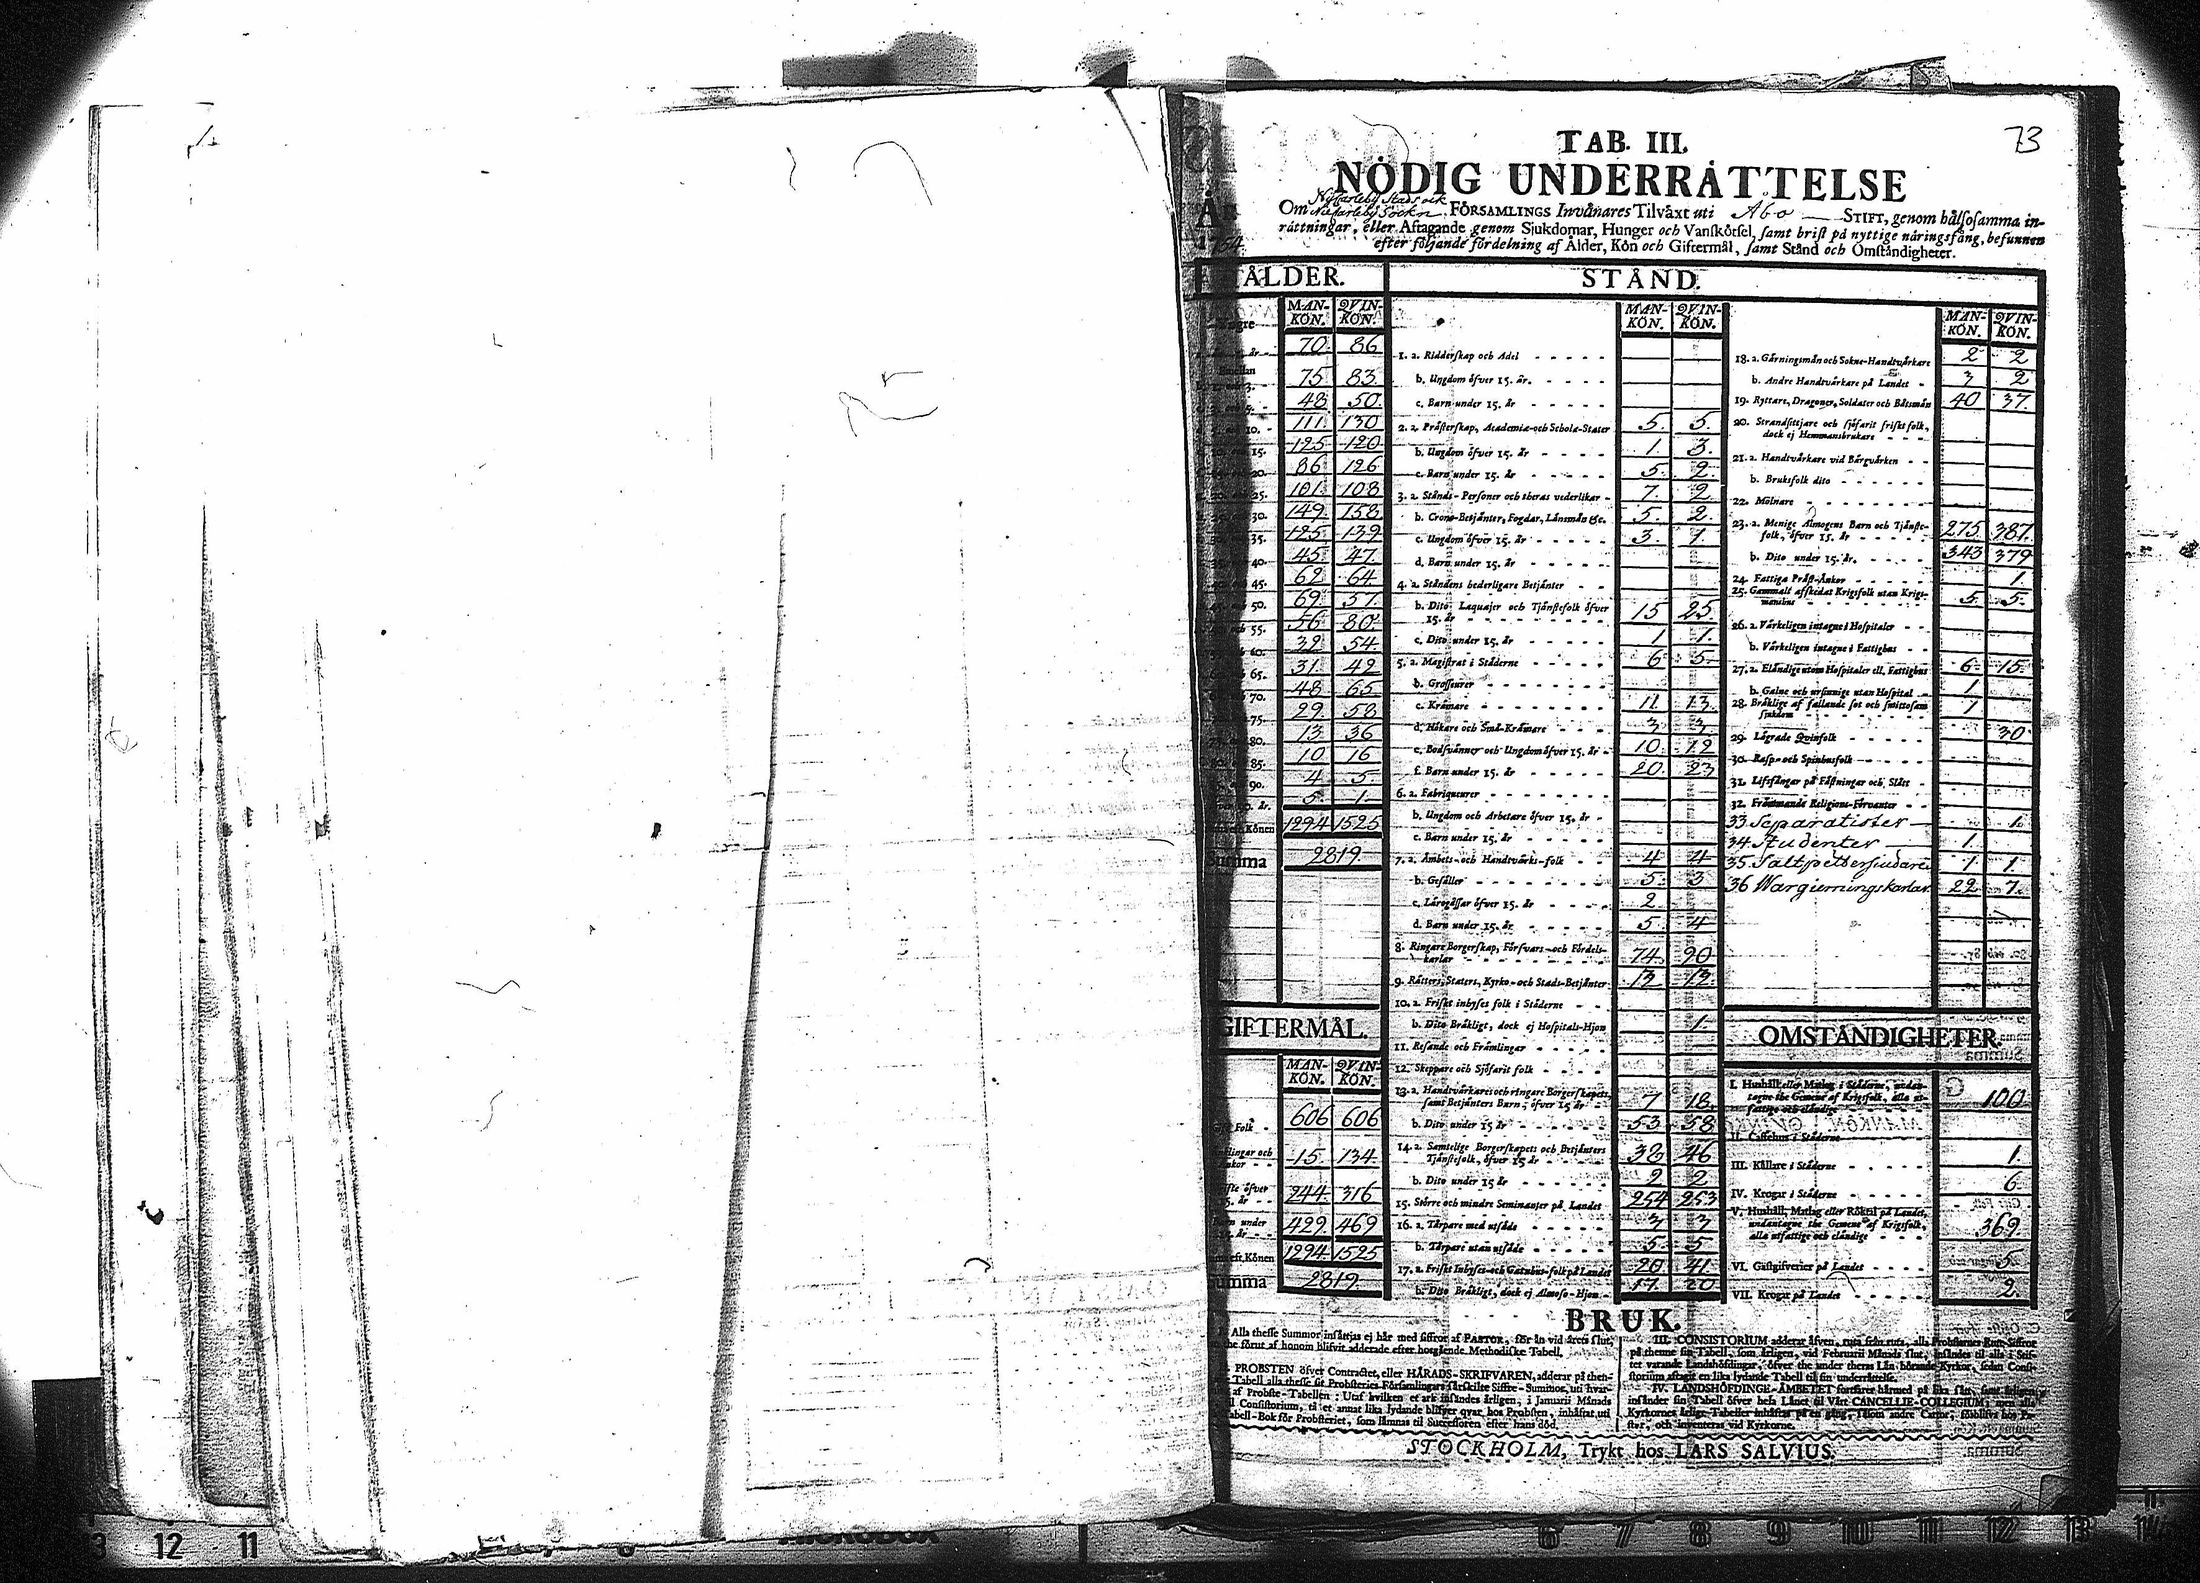 73
TAB. III.
NÖDIG UNDERRÄTTELSE
Nycarleby Stads ock
Om Nycarleby Sockn FÖRSAMLINGS Invånares Tilväxt uti Åbo STIFT, genom hälsosamma in-
rättningar, eller Aftagande genom Sjukdomar, Hunger och Vanskötsel, samt brist på nyttige näringsfång, befunnen
1754. efter följande fördelning af Ålder, Kön och Giftermål, samt Stånd och Omständigheter.
ÅLDER.
MAN-KÖN. QVIN-KÖN.
år - 70 86
Emellan
3. - 75 83
5. - 48 50
10. - 111 130
15. 125 120
20. 86 126
25. 101 108
30. 149 158
35. 125 139
40. 45 47
45. 62 64
50. 69 57
55. 56 80
60. 39 54
65. 31 42
70. 48 65
75. 29 58
80. 13 36
85. 10 16
90. 4 5
år. 5 1
Könen 1294 1525
Summa 2819
GIFTERMÅL.
MAN-KÖN. QVIN-KÖN.
Gift Folk - 606 606
och 15 134
öfver
år - - 244 316
under
år - - 429 469
Könen 1294 1525
Summa 2819
STÅND.
MAN-KÖN. QVIN-KÖN.
1. a. Ridderskap och Adel
b. Ungdom öfver 15. år.
c. Barn under 15. år
2. a. Prästerskap, Academiæ-och Scholæ-Stater 5 5
b. Ungdom öfver 15. år 1 3
c. Barn under 15. år 5 2
3. a. Stånds-Personer och theras vederlikar 7 2
b. Crono-Betjänter, Fogdar, Länsmän &c. 5 2
c. Ungdom öfver 15. år 3 1
d. Barn under 15. år
4. a. Ståndens hederligare Betjänter
b. Dito Laquajer och Tjänstefolk öfver
15. år 15 25
c. Dito under 15. år 1 1
5. a. Magistrat i Städerne 6 5
b. Grosseurer
c. Krämare 11 13
d. Hökare och Små-Krämare 3 3
e. Bodsvänner och Ungdom öfver 15. år 10 12
f. Barn under 15. år 20 23
6. a. Fabriqueurer
b. Ungdom och Arbetare öfver 15. år
c. Barn under 15. år
7. a. Ämbets-och Handtverks-folk 4 4
b. Gesäller 5 3
c. Lärogåssar öfver 15. år 2
d. Barn under 15. år 5 4
8. Ringare Borgerskap, Försvars-och Fördels-
karlar 74 90
9. Rätters, Staters, Kyrko-och Stads-Betjänter 12 12
10. a. Friskt inhyses folk i Städerne
b. Dito Bräkligt, dock ej Hospitals-Hjon 1
11. Resande och Främlingar
12. Skeppare och Sjöfarit folk
13. a. Handtverkares och ringare Borgerskapets,
samt Betjänters Barn, öfver 15 år 7 18
b. Dito under 15 år 53 58
14. a. Samtelige Borgerskapets och Betjänters
Tjänstefolk, öfver 15 år 38 46
b. Dito under 15 år 2 2
15. Större och mindre Seminanter på Landet 254 253
16. a. Torpare med utsäde 3 3
b. Torpare utan utsäde 5 5
17. a. Friskt Inhyses-och Gatuhus-folk på Landet 20 41
b. Dito Bräkligt, dock ej Almoso-Hjon 17 20
MAN-KÖN. QVIN-KÖN.
18. a. Gärningsmän och Sokne-Handtverkare 2 2
b. Andre Handtverkare på Landet 3 2
19. Ryttare, Dragoner, Soldater och Båtsmän 40 37
20. Strandsittjare och sjöfarit friskt folk,
dock ej Hemmansbrukare
21. a. Handtverkare vid Bärgverken
b. Bruksfolk dito
22. Mölnare
23. a. Menige Almogens Barn och Tjänste-
folk, öfver 15. år 275 387
b. Dito under 15. år. 343 379
24. Fattiga Präst-Änkor 1
25. Gammalt afskedat Krigsfolk utan Krigs-
manshus 5 5
26. a. Verkeligen intagne i Hospitaler
b. Verkeligen intagne i Fattighus
27. a. Eländige utom Hospitaler ell. Fattighus 6 15
b. Galne och ursinnige utan Hospital 1
28. Bräklige af fallande sot och smittosam
sjukdom 1
29. Lägrade Qvinfolk 30
30. Rasp-och Spinhusfolk
31. Lifsfångar på Fästningar och Slått
32. Främmande Religions-Förvanter
33 Separatister 1
34 Studenter 1
35 Saltpettersiudare 1 1
36 Wargierningskarlar 22 7
OMSTÄNDIGHETER.
I. Hushåll eller Matlag i Städerne, undan-
tagne the Gemene af Krigsfolk, alla ut-
fattige och eländige 100
II. Caffehus i Städerne
III. Källare i Städerne 1
IV. Krogar i Städerne 6
V. Hushåll, Matlag eller Röktal på Landet,
undantagne the Gemene af Krigsfolk,
alla utfattige och eländige 369
VI. Gästgifverier på Landet 5
VII. Krogar på Landet 2
BRUK.
Alla thesse Summor insättjas ej här med siffror af PASTOR, för än vid årets slut,
the förut af honom blifvit adderade efter hosgående Methodiske Tabell.
PROBSTEN öfver Contractet, eller HÄRADS-SKRIFVAREN, adderar på then-
Tabell alla thesse sit Probsteries Församlingars särskilte Siffre-Summor, uti hvar-
af Probste-Tabellen: Utaf hvilken et ark insändes årligen, i Januarii Månads
l Consistorium, tå et annat lika lydande blifver qvar hos Probsten, inhäftat uti
abell-Bok för Probsteriet, som lämnas til Successoren efter hans död.
III. CONSISTORIUM adderar äfven, ruta från ruta, alla Probstiernes Rute-Siffror
på thenne sin Tabell, som årligen, vid Februarii Månads slut, insändes til alla i Stif-
tet varande Landshöfdingar, öfver the under theras Län hörande Kyrkor, sedan Consi-
storium aftagit en lika lydande Tabell til sin underrättelse.
IV. LANDSHÖFDINGE-ÄMBETET fortfarer härmed på lika sätt, samt årligen
insänder sin Tabell öfver hela Länet til Vårt CANCELLIE-COLLEGIUM; men alla
Kyrkornes årlige Tabeller inhäftas på en gång, såsom andre Cartor, hos Pa-
stor, och inventeras vid Kyrkorne.
STOCKHOLM, Trykt hos LARS SALVIUS.
12 11
6 7 8 9 10 11 12 13 14